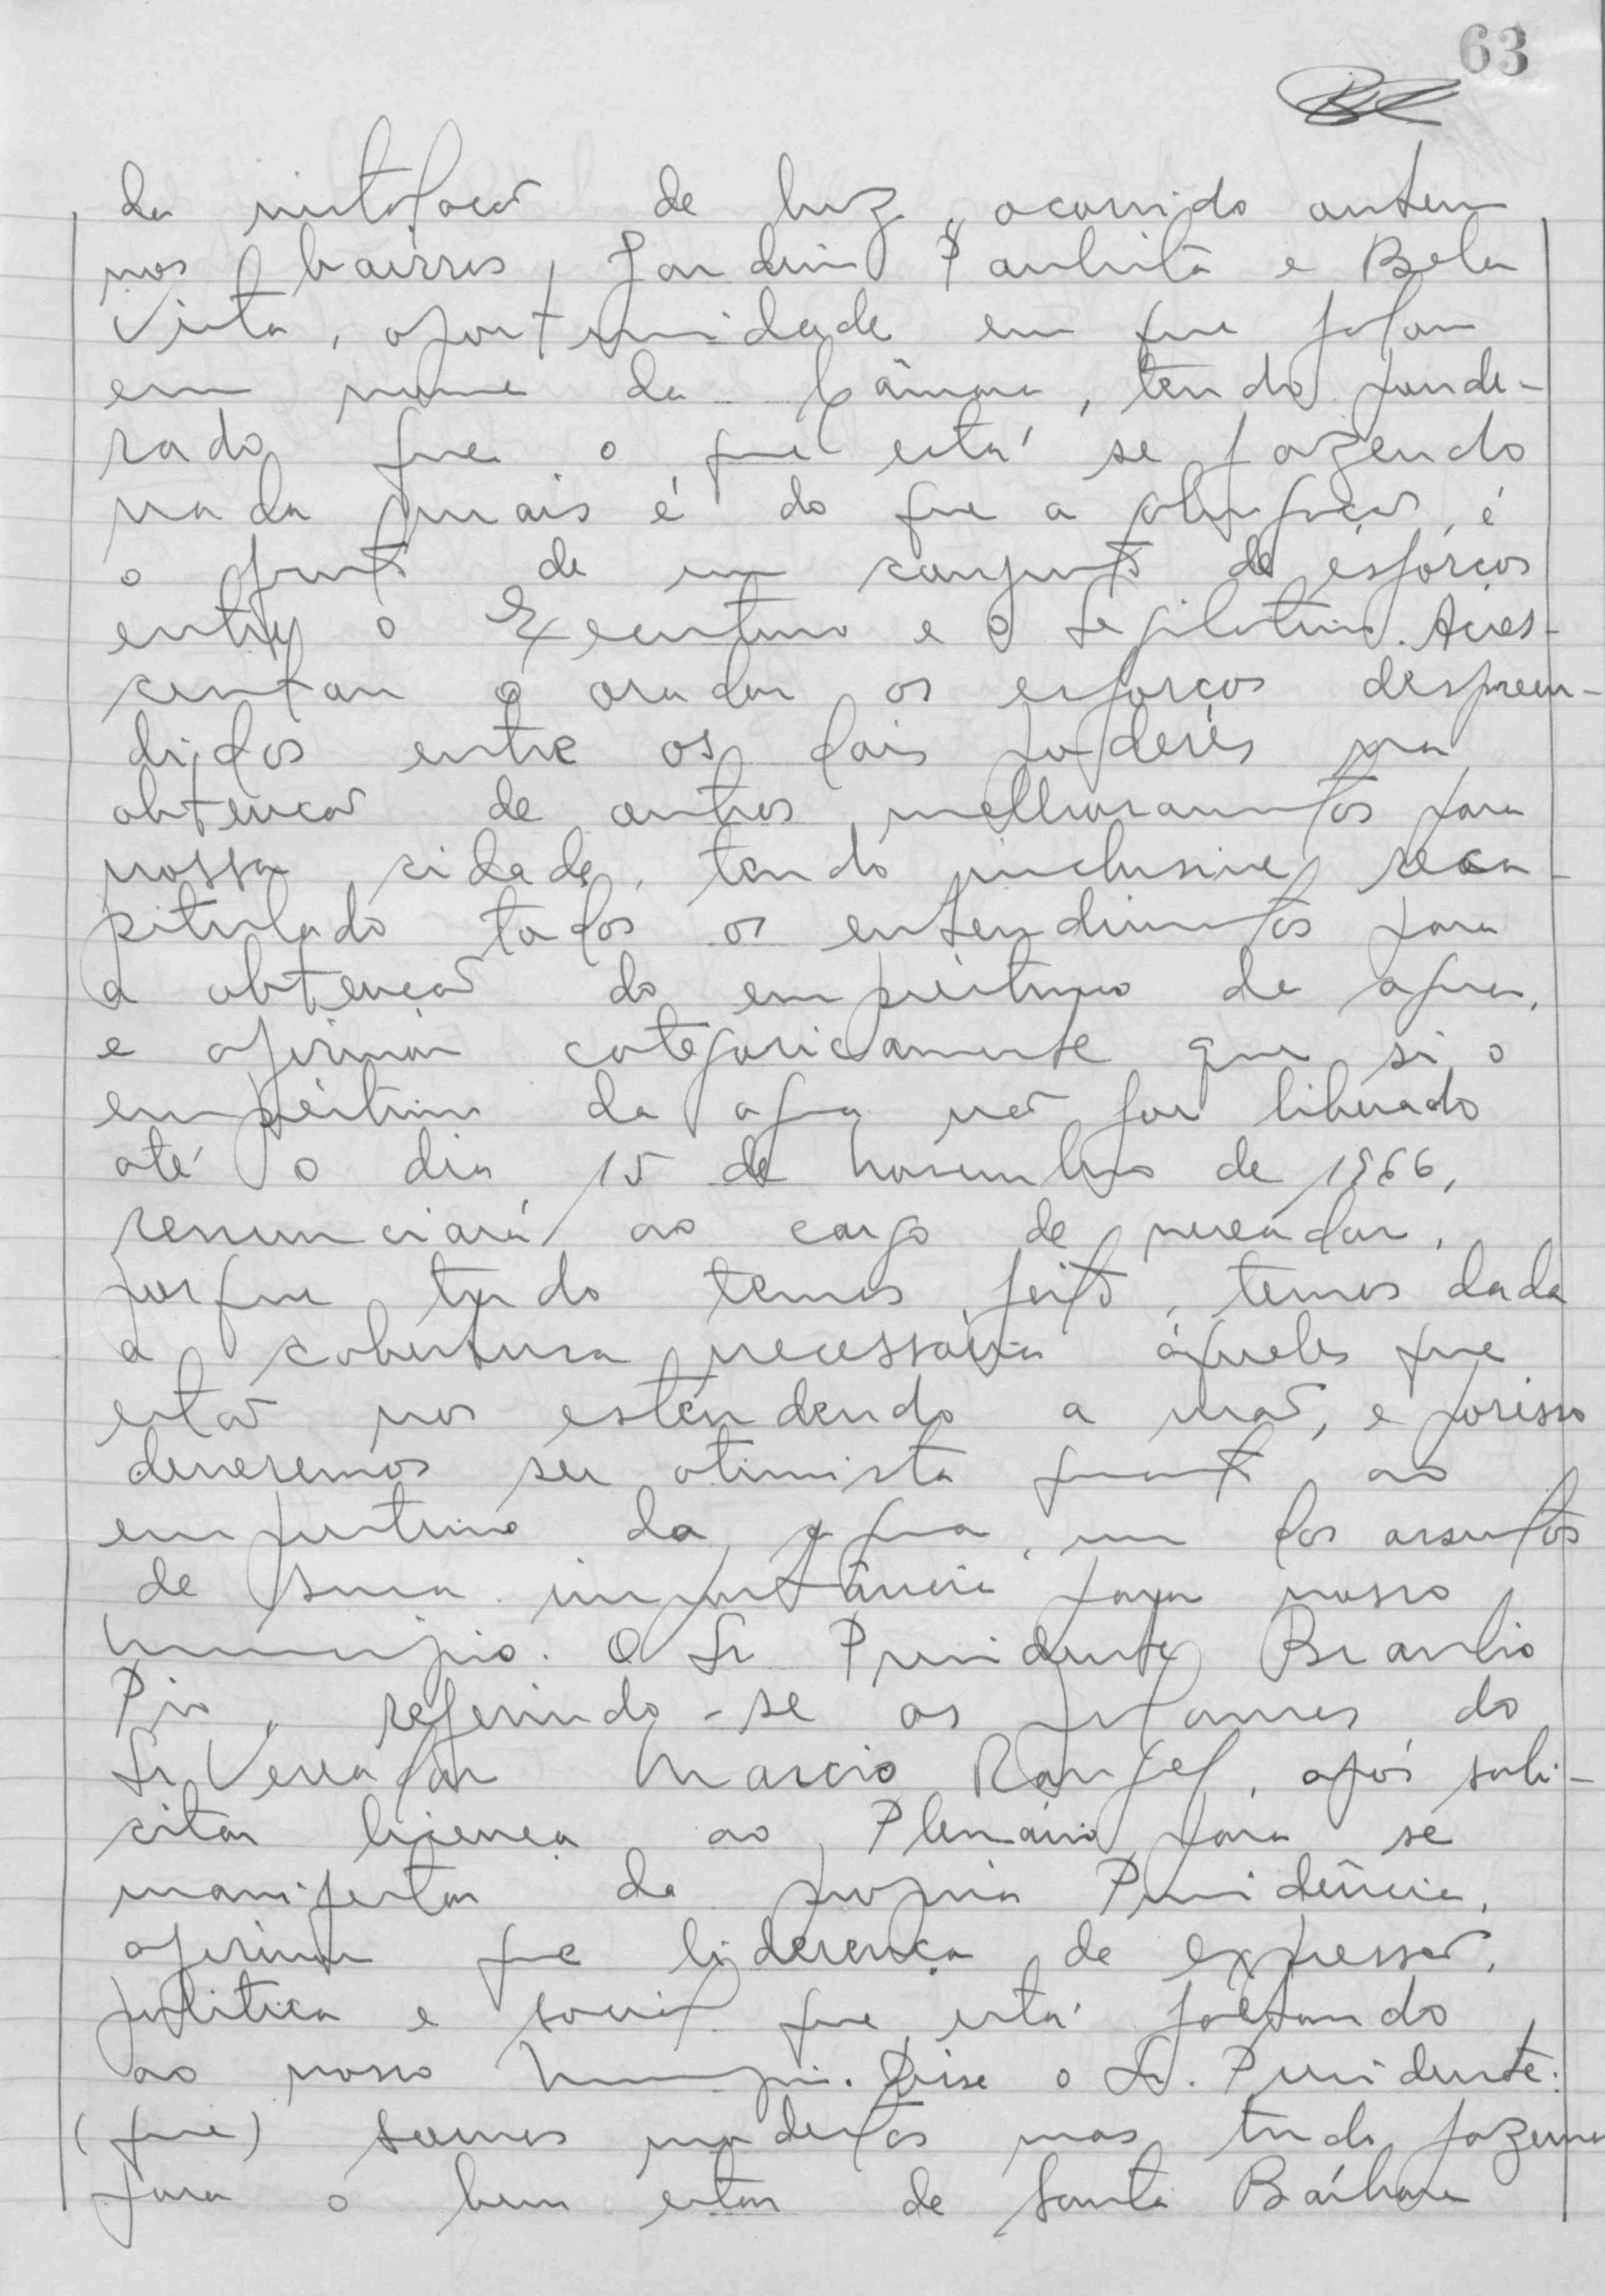 63
da instalação de luz, ocorrido ontem
nos bairros, Jardim Paulista e Bela
Vista, oportunidade em que falou
em nome da Câmara, tendo ponde-
rado que o que está se fazendo
nada mais é do que a obrigação, é
o fruto de um conjunto de esforços
entre o Executivo e o Legislativo. Acres-
centou o orador os esforços despreen-
didos entre os dois poderes na
obtenção de outros melhoramentos para
nossa cidade, tendo inclusive reca-
pitulado todos os entendimentos para
a obtenção do empréstimo de agua,
e afirmou categoricamente que si o
empréstimo da agua não for liberado
até o dia 15 de novembro de 1966,
renunciará ao cargo de vereador,
porque tudo temos feito, temos dada
a cobertura necessária áqueles que
estão nos estendendo a mão, e porisso
deveremos ser otimista quanto ao
emprestimo da agua, um dos assuntos
de suma importância para nosso
Municipio. O Sr Presidente Braulio
Pio, referindo-se as palavras do
Sr Vereador Marcio Rangel, após soli-
citar licença ao Plenário para se
manifestar da propria Presidência,
afirmou que liderença de expressão,
politica e social que está faltando
ao nosso Municipio. Disse o Sr. Presidente:
(que) somos modestos mas tudo fazemos
para o bem estar de Santa Bárbara